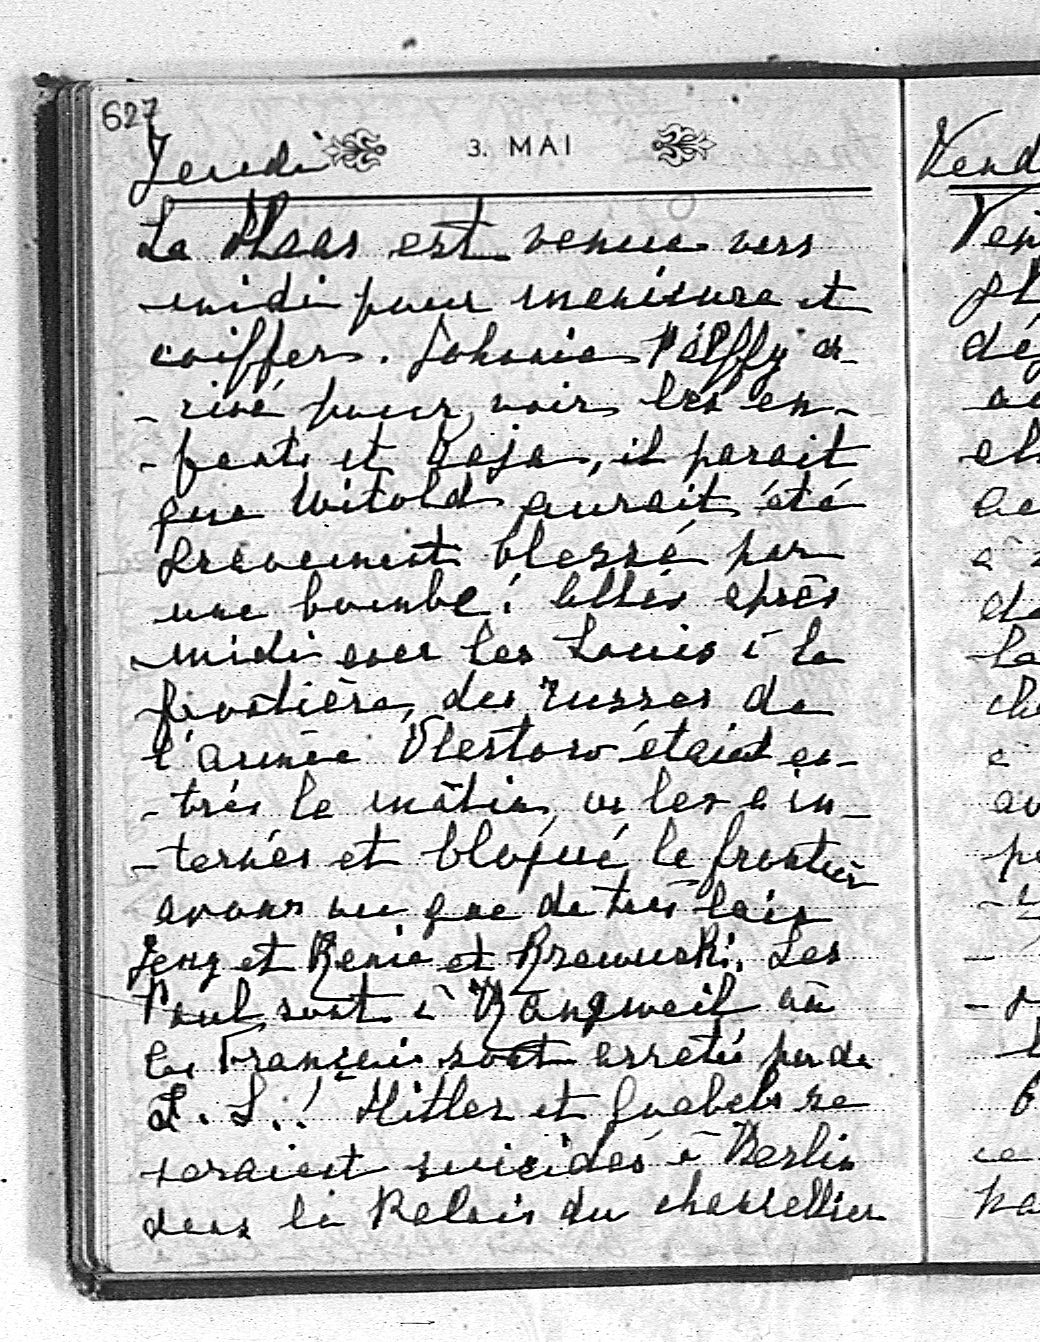 627
Jeudi
3. MAI
La Haas est venue vers
midi pour manicure et
coiffer. Johnnie Pálffy ar
- rivé pour voir les en-
- fants et Baja, il parait
que Witold aurait été
grèvement blessé par
une bombe! Allés après
midi avec les Louis à la
frontière, des russes de
l'armée Vlastow étaient en-
- trés le mâtin, on les a in-
- ternés et bloqué la frontière
avons vu que de très loin
et Renie et les
Paul sont à Rangweil où
les Français sont arretés par de
S. S.! Hitler et Guebels se
seraient suicidés à Berlin
dans le Palais du chancellier
Vend